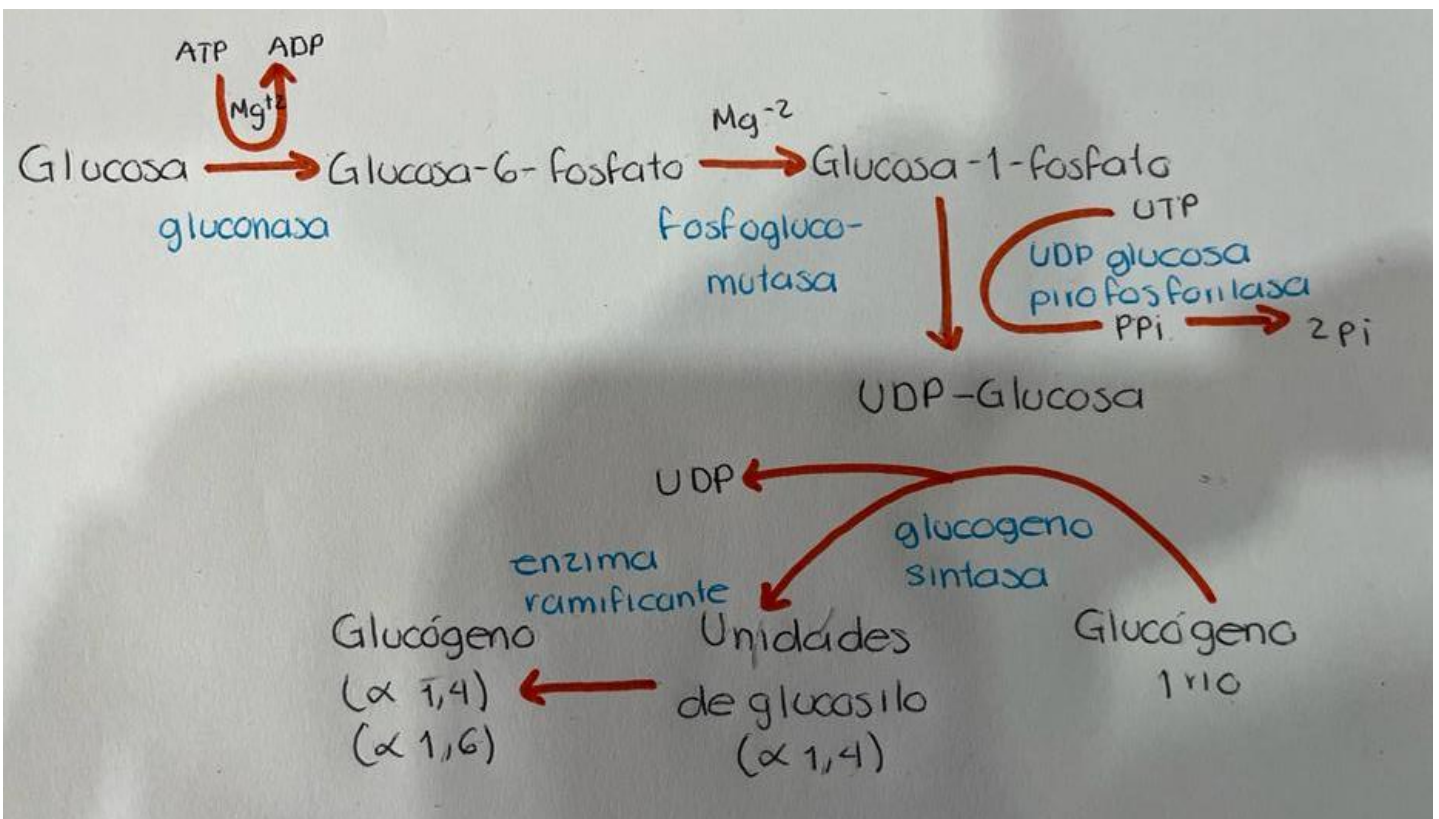 ATP ADP
Mg+2
Mg-2
Glucosa Glucosa-6-fosfato Glucosa-1-fosfato
gluconasa
fosfogluco-
mutasa
UTP
UDP glucosa
pirofosforilasa
PPi 2pi
UDP-Glucosa
UDP
glucogeno
sintasa
enzima
ramificante
Glucógeno
(α 1,4)
(α 1,6)
Unidades
de glucosilo
(α 1,4)
Glucógeno
1rio